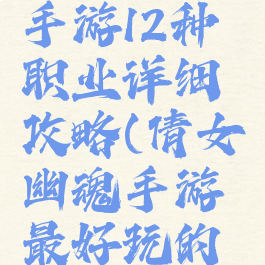 手游12种
职业详细
攻略(倩女
幽魂手游
最好玩的